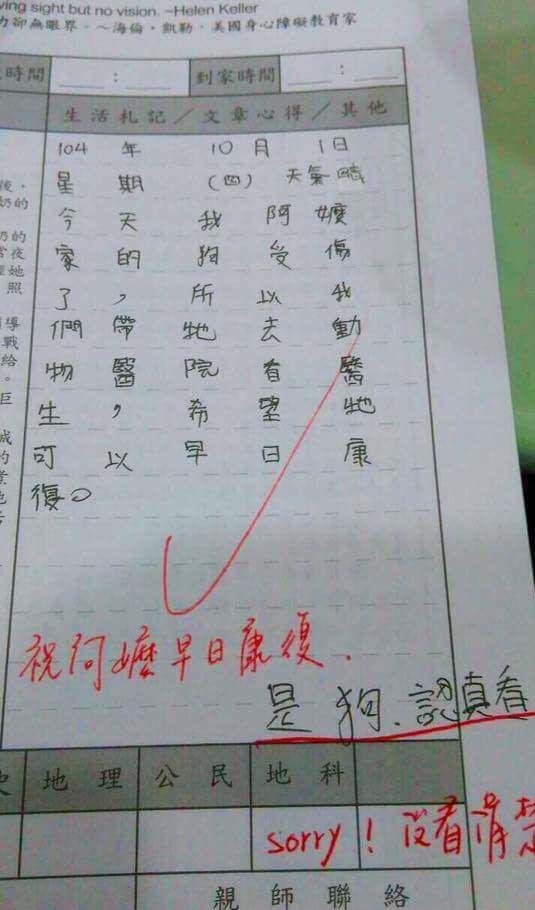 ving sight but no vision. ~Helen Keller
力卻無眼界。~海倫·凱勒，美國身心障礙教育家
時間 ____ : ____ 到家時間 ____ : ____
生活札記／文章心得／其他
104 年 10 月 1日
星期 (四) 天氣 晴
今天我阿嬤
家的狗受傷
了，所以我
們帶牠去動
物醫院看醫
生，希望牠
可以早日康
復。
後，
奶的
奶的
常夜
她
照
導
戰
給
。
巨
成
的
祝阿嬤早日康復.
是狗.認真看
史 地理 公民 地科
sorry! 沒看清楚
親師聯絡